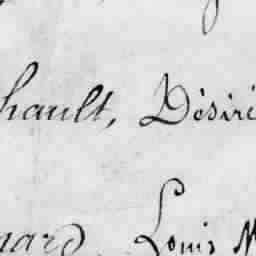 hault, Désiré
nard, Louis M